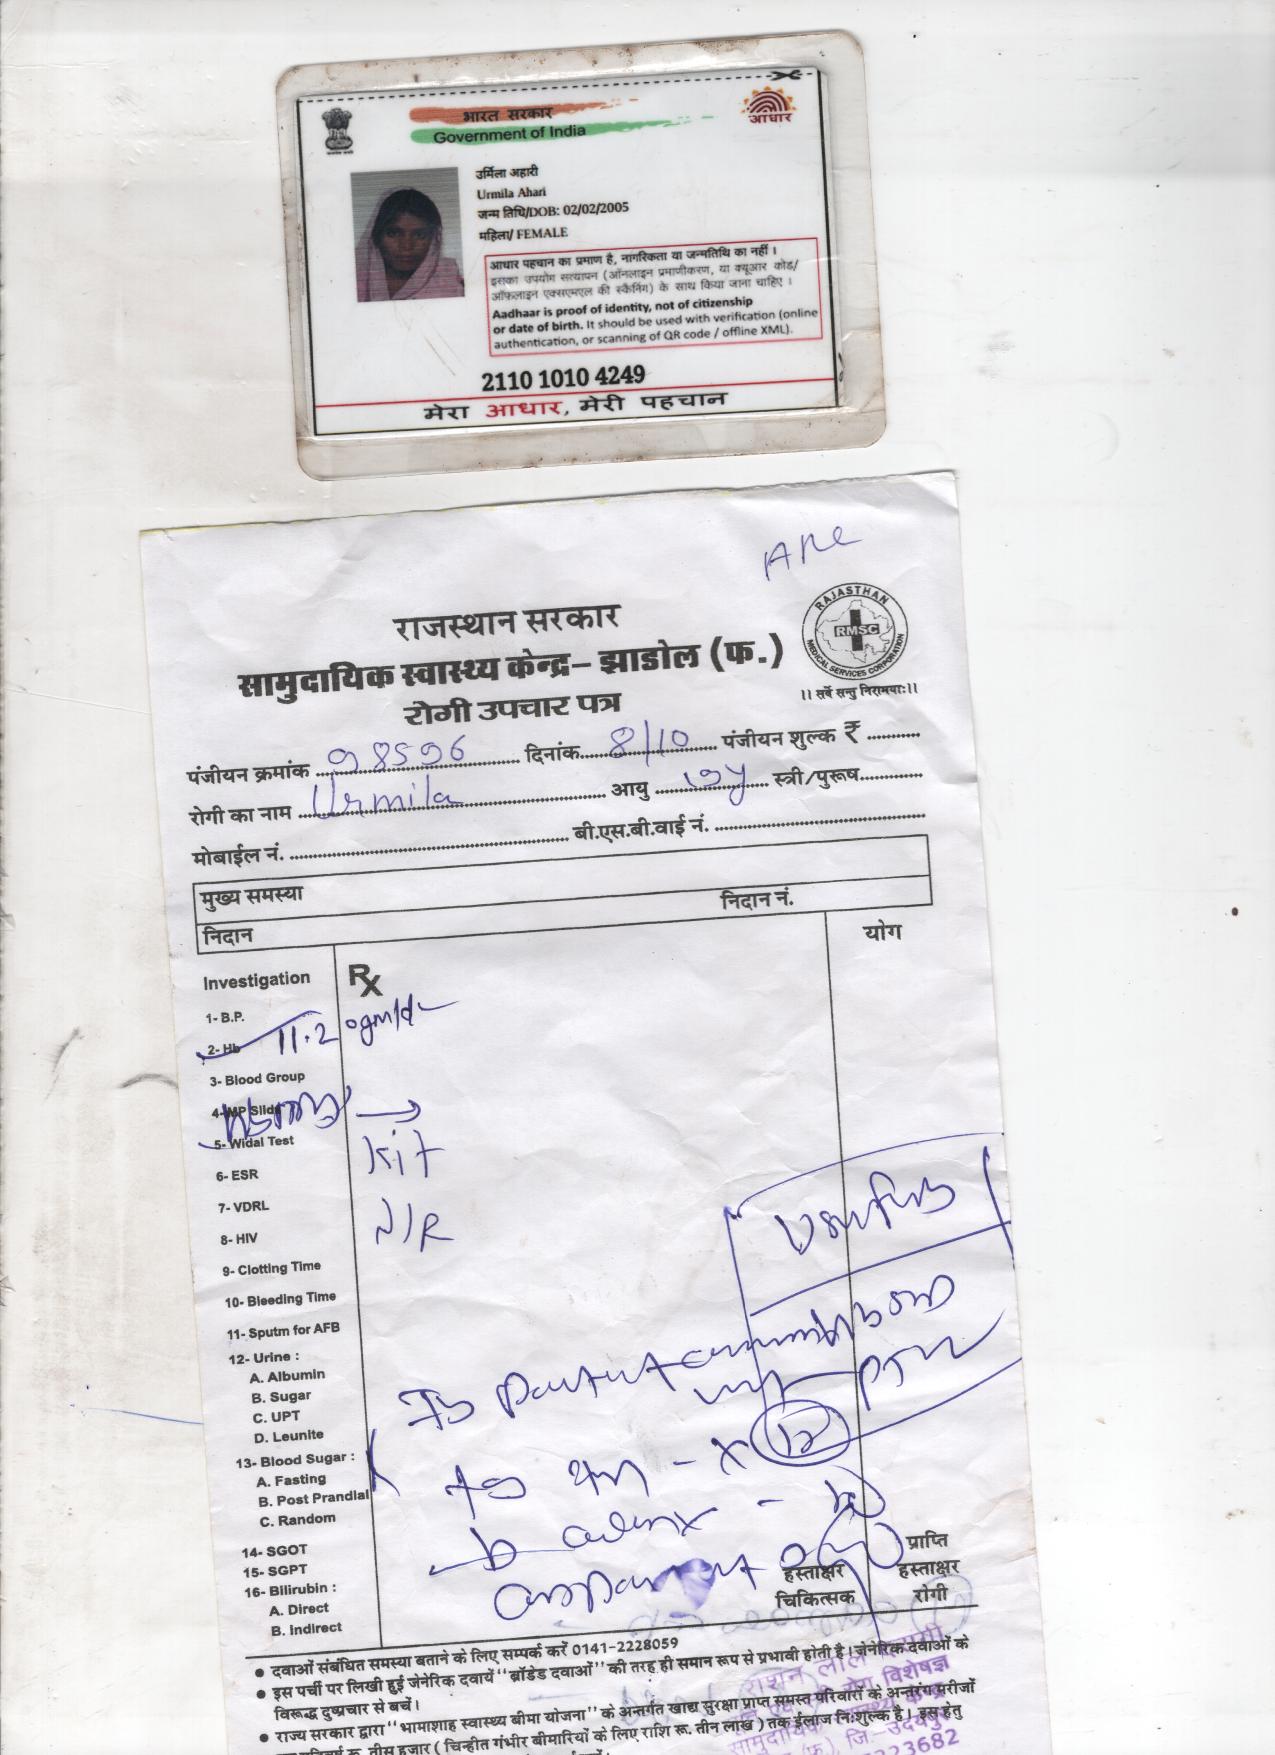 भारत सरकार
Government of India
आधार
उर्मिला अहारी
Urmila Ahari
जन्म तिथि/DOB: 02/02/2005
महिला/ FEMALE
आधार पहचान का प्रमाण है, नागरिकता या जन्मतिथि का नहीं ।
इसका उपयोग सत्यापन (ऑनलाइन प्रमाणीकरण, या क्यूआर कोड/
ऑफ़लाइन एक्सएमएल की स्कैनिंग) के साथ किया जाना चाहिए ।
Aadhaar is proof of identity, not of citizenship
or date of birth. It should be used with verification (online
authentication, or scanning of QR code / offline XML).
2110 1010 4249
मेरा आधार, मेरी पहचान
राजस्थान सरकार
RAJASTHAN
RMSC
MEDICAL SERVICES CORPORATION
सामुदायिक स्वास्थ्य केन्द्र– झाडोल (फ.)
।। सर्वे सन्तु निरामयाः।।
रोगी उपचार पत्र
पंजीयन क्रमांक 98596 दिनांक 8/10 पंजीयन शुल्क ₹
रोगी का नाम Urmila आयु स्त्री/पुरूष
मोबाईल नं. बी.एस.बी.वाई नं.
मुख्य समस्या निदान नं.
निदान
योग
Investigation Rx
1- B.P.
2- Hb 11.2 gm/dl
3- Blood Group
4- MP Slide
5- Widal Test
6- ESR Kit
7- VDRL
8- HIV N/R
9- Clotting Time
10- Bleeding Time
11- Sputm for AFB
12- Urine :
A. Albumin
B. Sugar
C. UPT
D. Leunite
13- Blood Sugar :
A. Fasting
B. Post Prandial
C. Random
14- SGOT
15- SGPT
16- Bilirubin :
A. Direct
B. Indirect
हस्ताक्षर
चिकित्सक
प्राप्ति
हस्ताक्षर
रोगी
● दवाओं संबंधित समस्या बताने के लिए सम्पर्क करें 0141-2228059
● इस पर्ची पर लिखी हुई जेनेरिक दवायें "ब्रॉडेड दवाओं" की तरह ही समान रूप से प्रभावी होती है। जेनेरिक दवाओं के
विरूद्ध दुष्प्रचार से बचें।
● राज्य सरकार द्वारा "भामाशाह स्वास्थ्य बीमा योजना" के अन्तर्गत खाद्य सुरक्षा प्राप्त समस्त परिवारों के अन्तरंग मरीजों
रू. तीस हजार ( चिन्हीत गंभीर बीमारियों के लिए राशि रू. तीन लाख ) तक ईलाज निःशुल्क है। इस हेतु